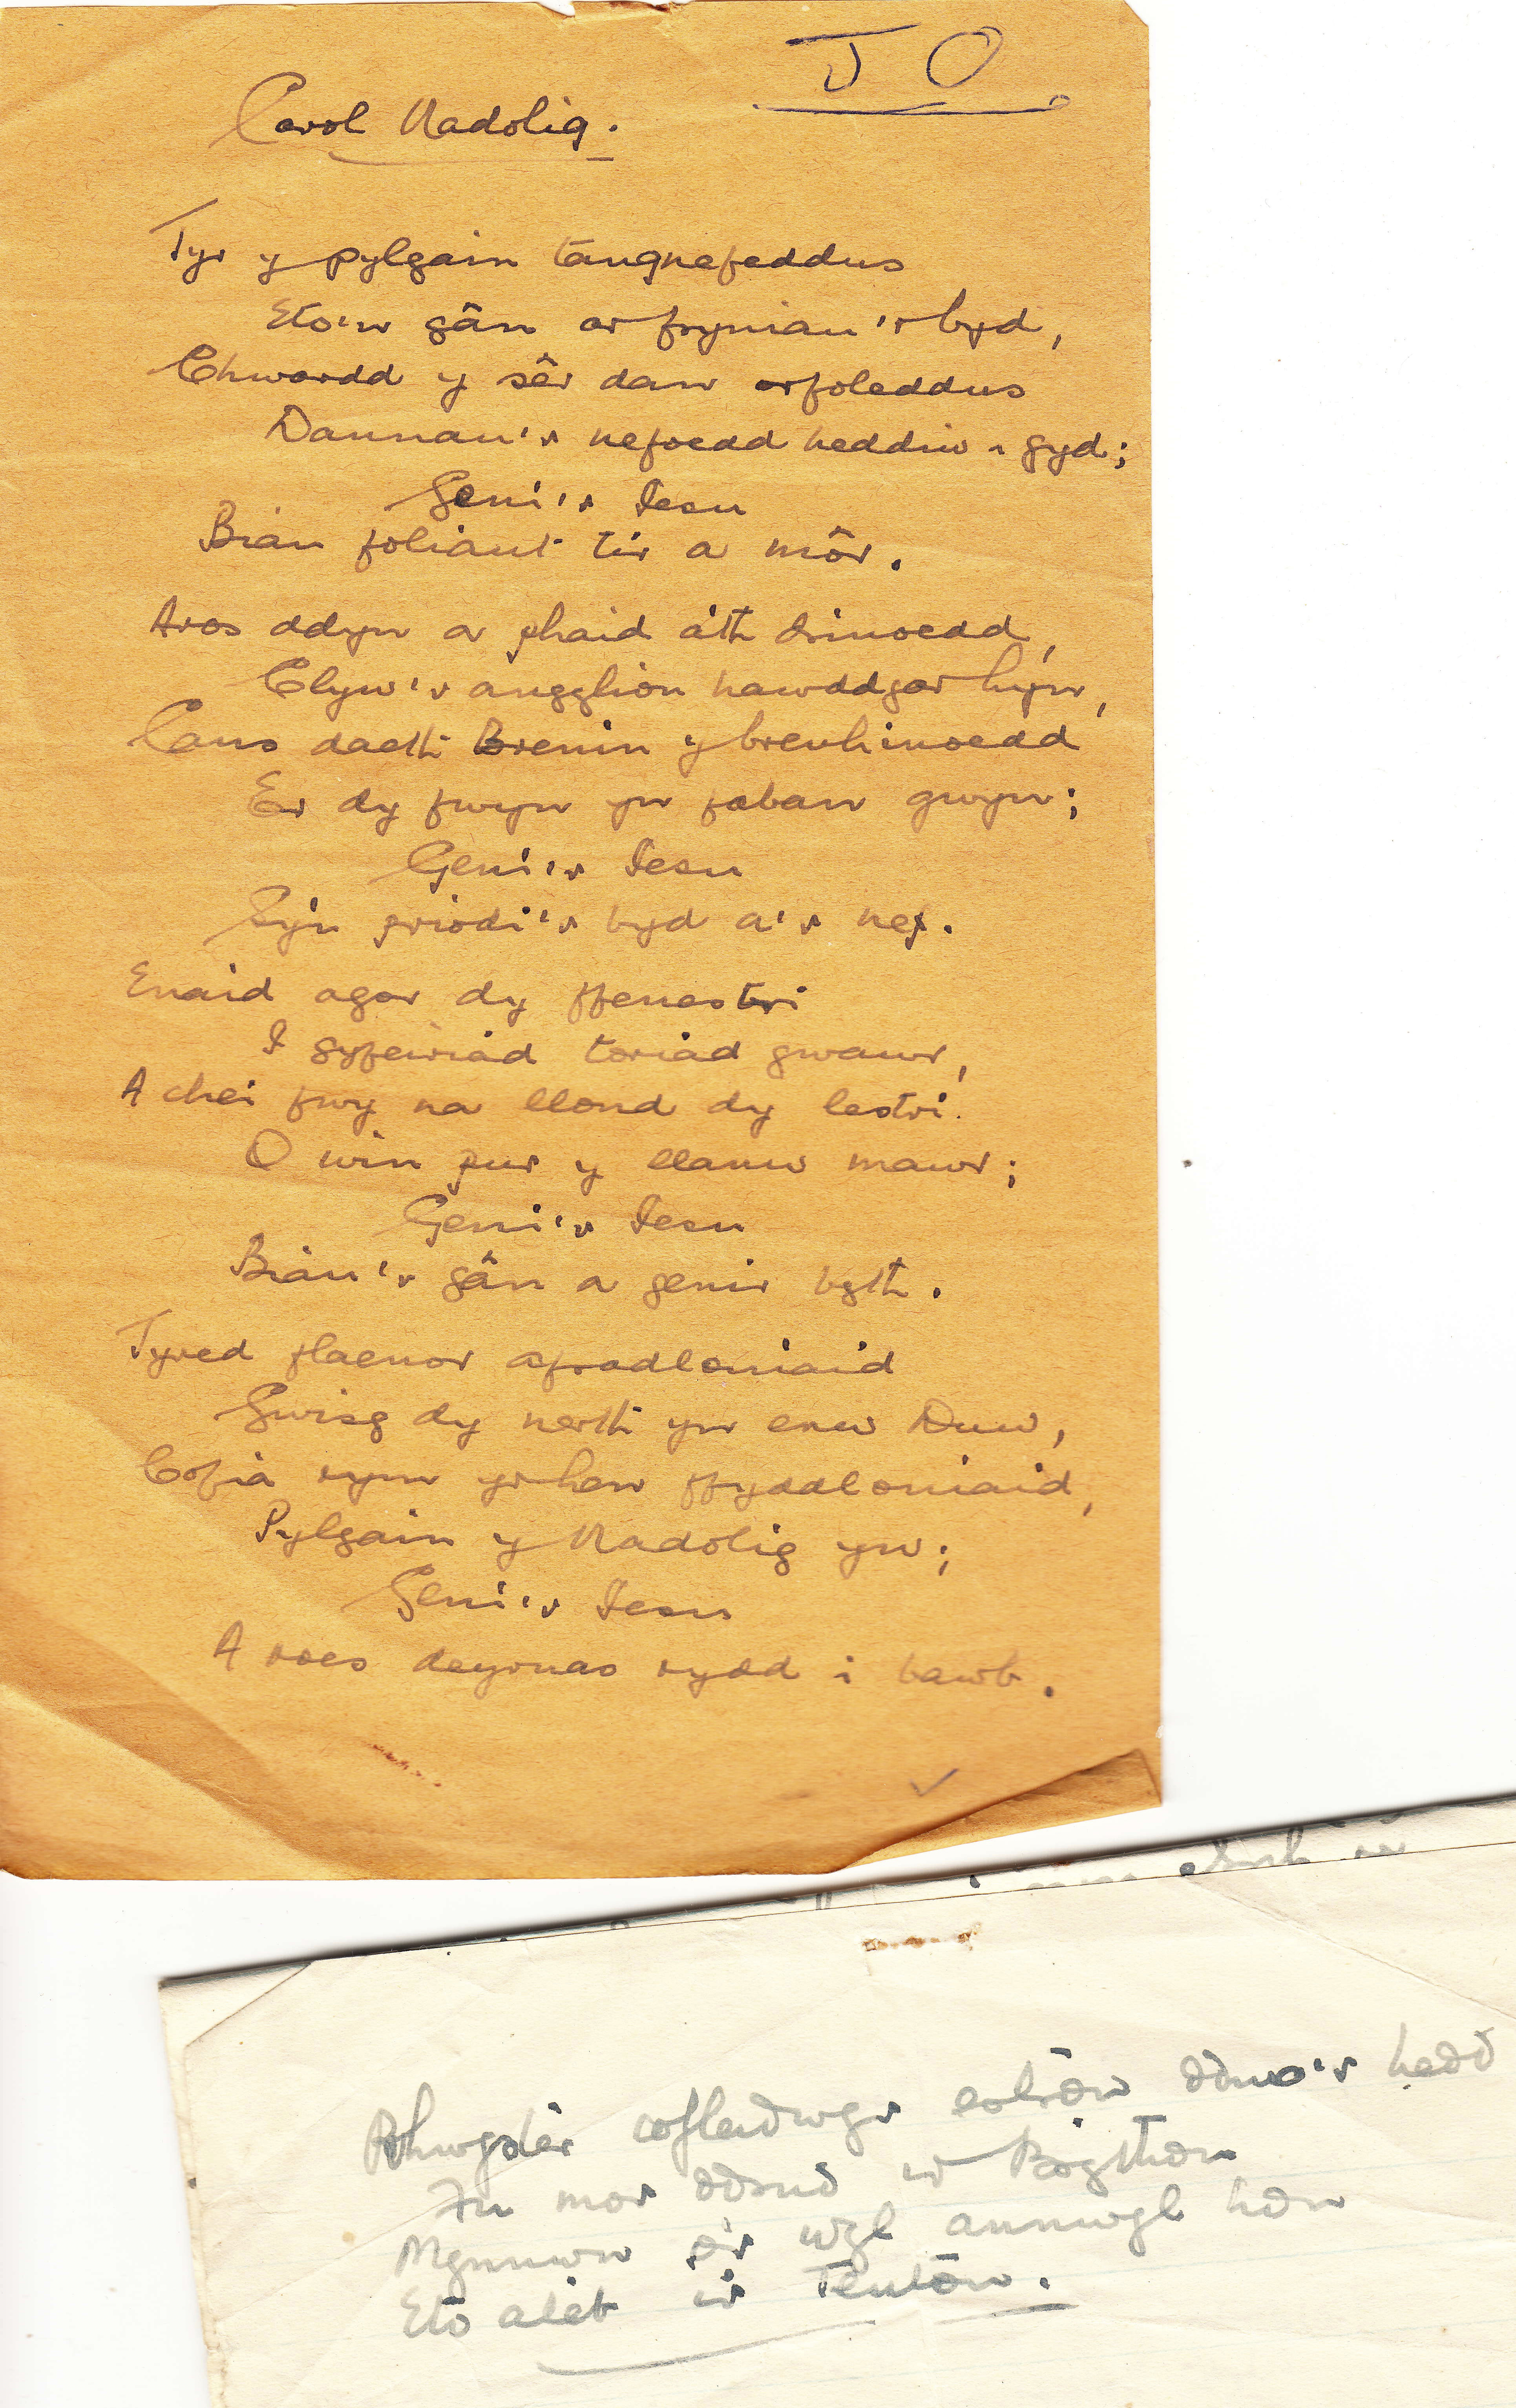 J O
Carol Nadolig.
Tyr y pylgain tangnefeddus
Eto'n gân ar fryniau'r byd,
Chwardd y sêr dan orfoleddus
Dannau'r nefoedd heddiw i gyd;
Geni'r Iesu
Biau foliant tir a môr.
Aros ddyn a phaid a'th drinoedd,
Clyw'r angylion hawddgar hyn,
Cans daeth Brenin y brenhinoedd
Er dy fwyn yn faban gwyn;
Geni'r Iesu
Sy'n priodi'r byd a'r nef.
Enaid agor dy ffenestri
I gyfeiriad toriad gwawr,
A chei fwy na llond dy lestri.
O win pur y llanw mawr;
Geni'r Iesu
Biau'r gân a genir byth.
Tyred flaenor afradloniaid
Gwisg dy nerth yn enw Duw,
Cofia rym yr hen ffyddloniaid,
Pylgain y Nadolig yw;
Geni'r Iesu
A roes deyrnas rydd i bawb.
hedd
mor
annwyl hon
Eto ateb i'r Teutōn.